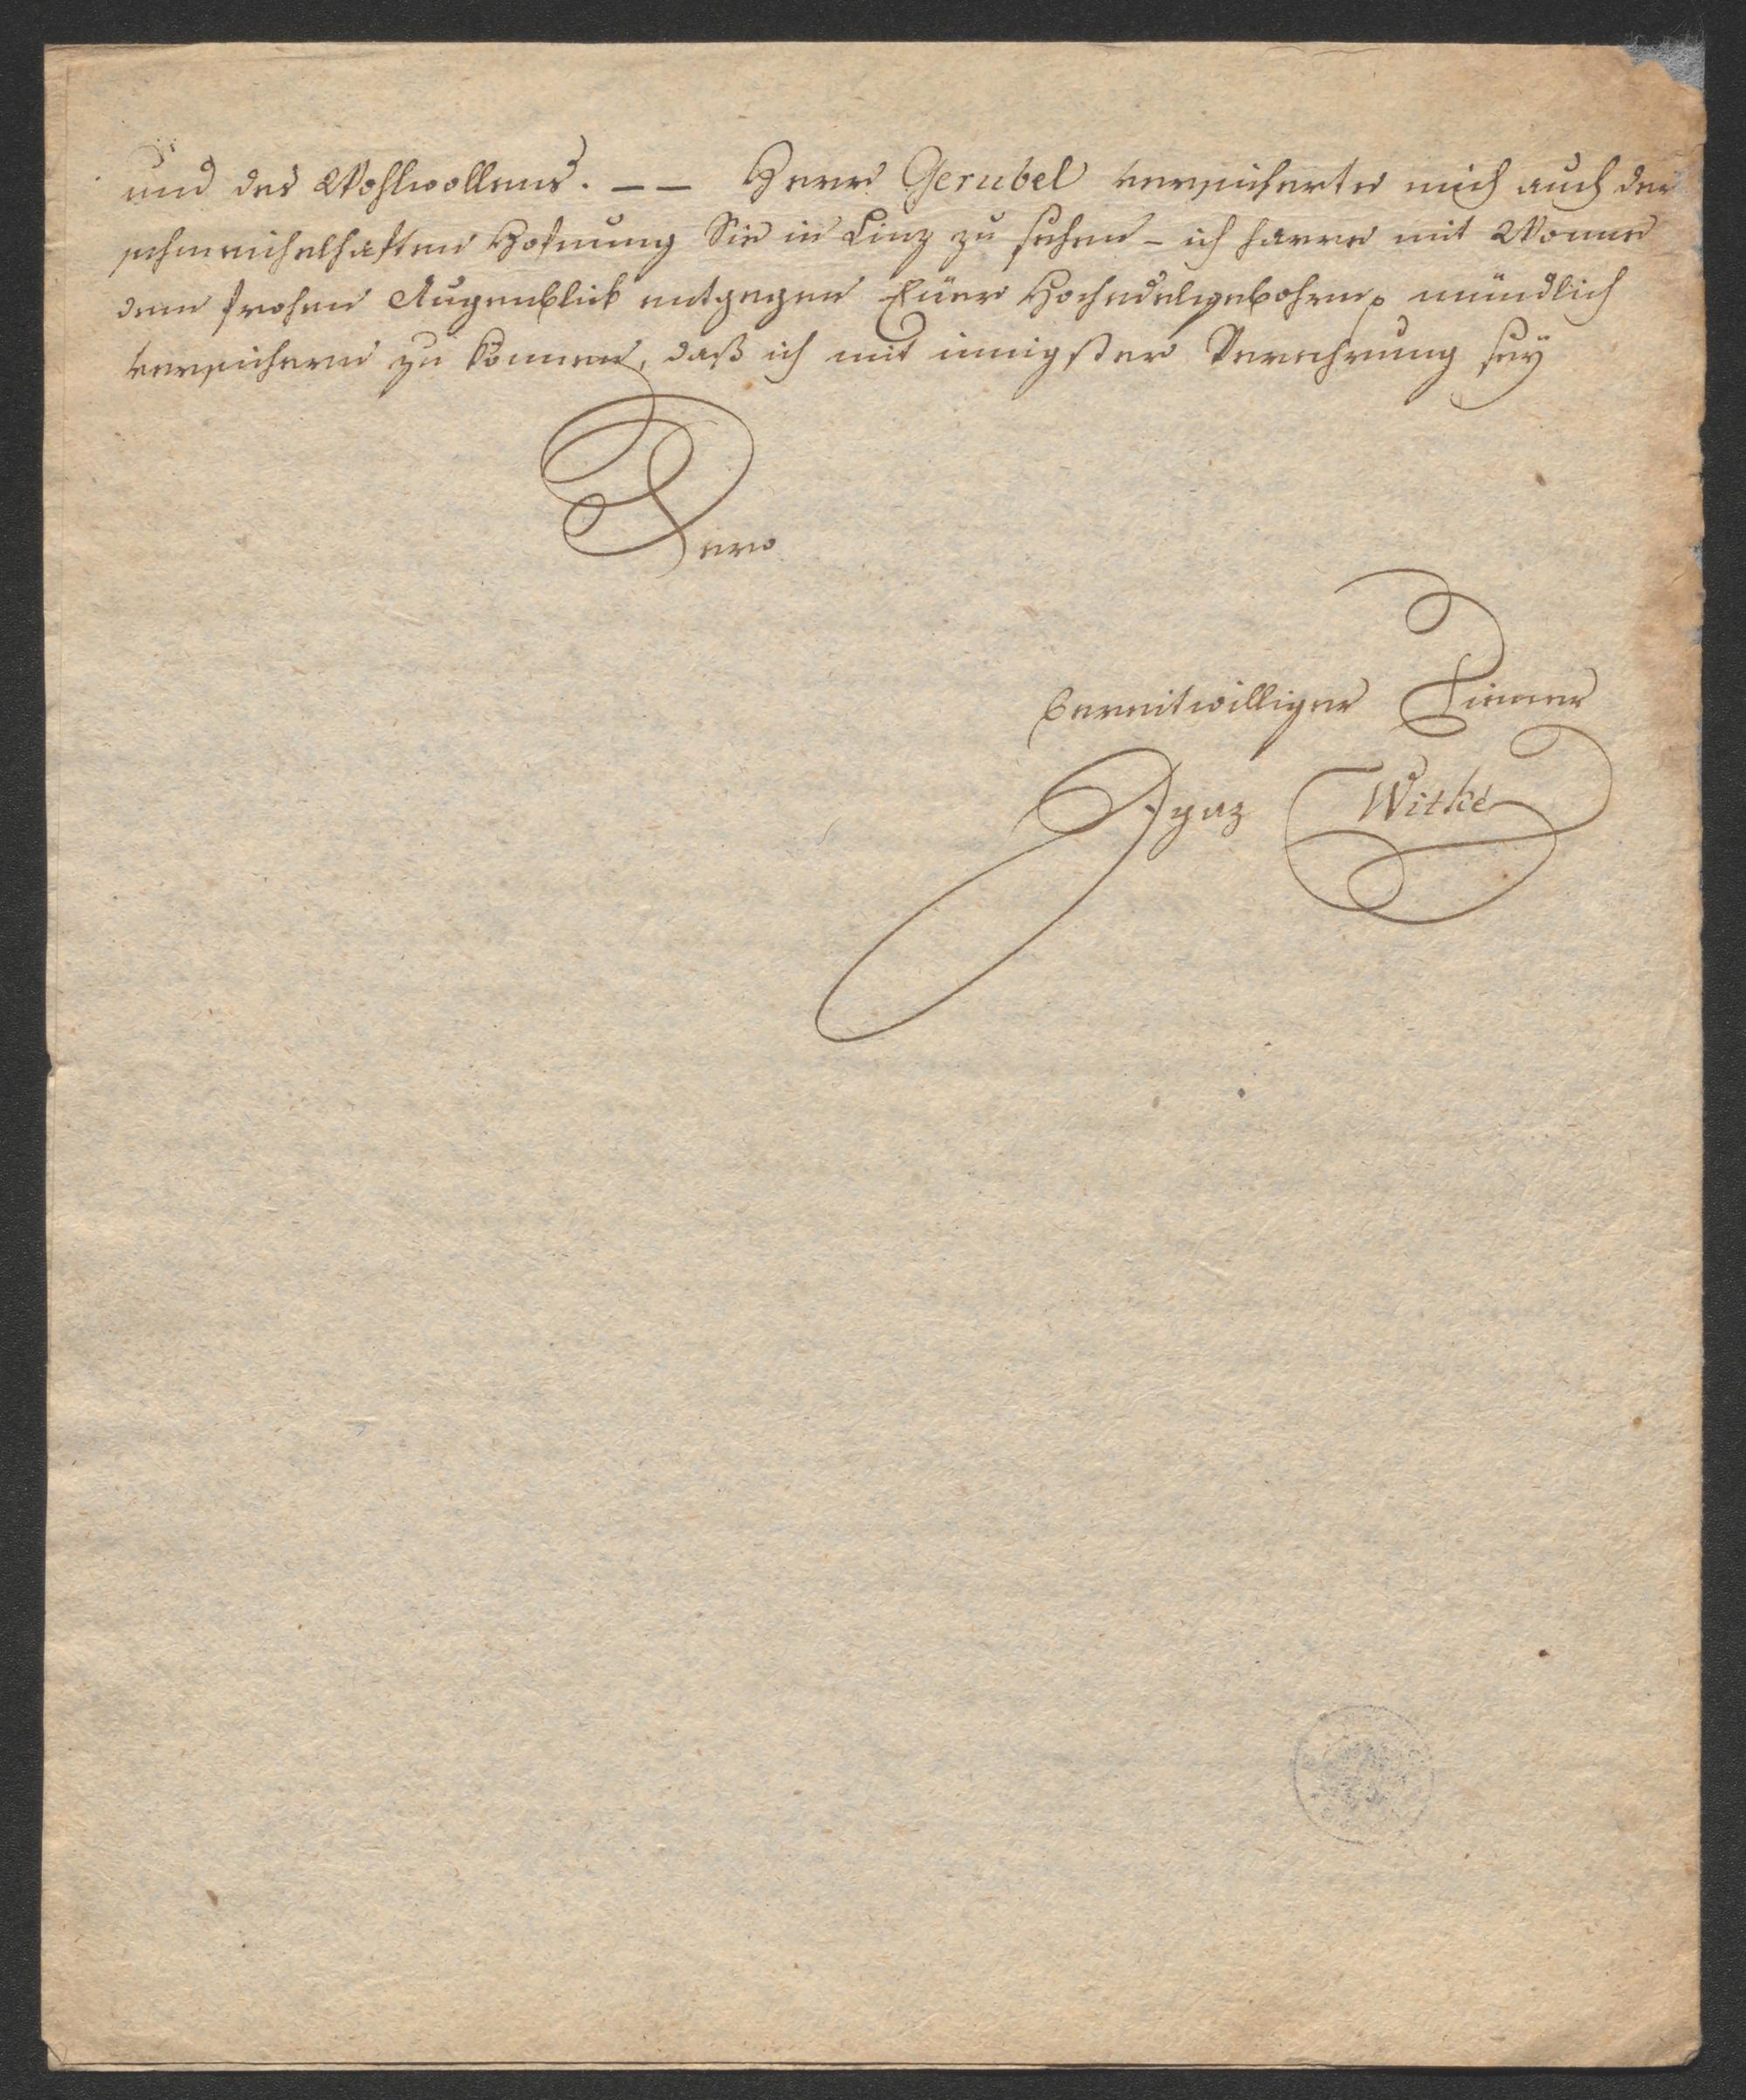 und des Wohlwollens. – – Herr Gerubel versicherte mich auch der
schmeichelhaften Hofnung Sie in Linz zu sehen – ich harre mit Wonne
dem frohen Augenblick entgegen Euer Hochedelgebohrn mündlich
versichern zu können, daß ich mit innigster Verehrung sey
Dero
bereitwilliger Diener
Ignaz Witke